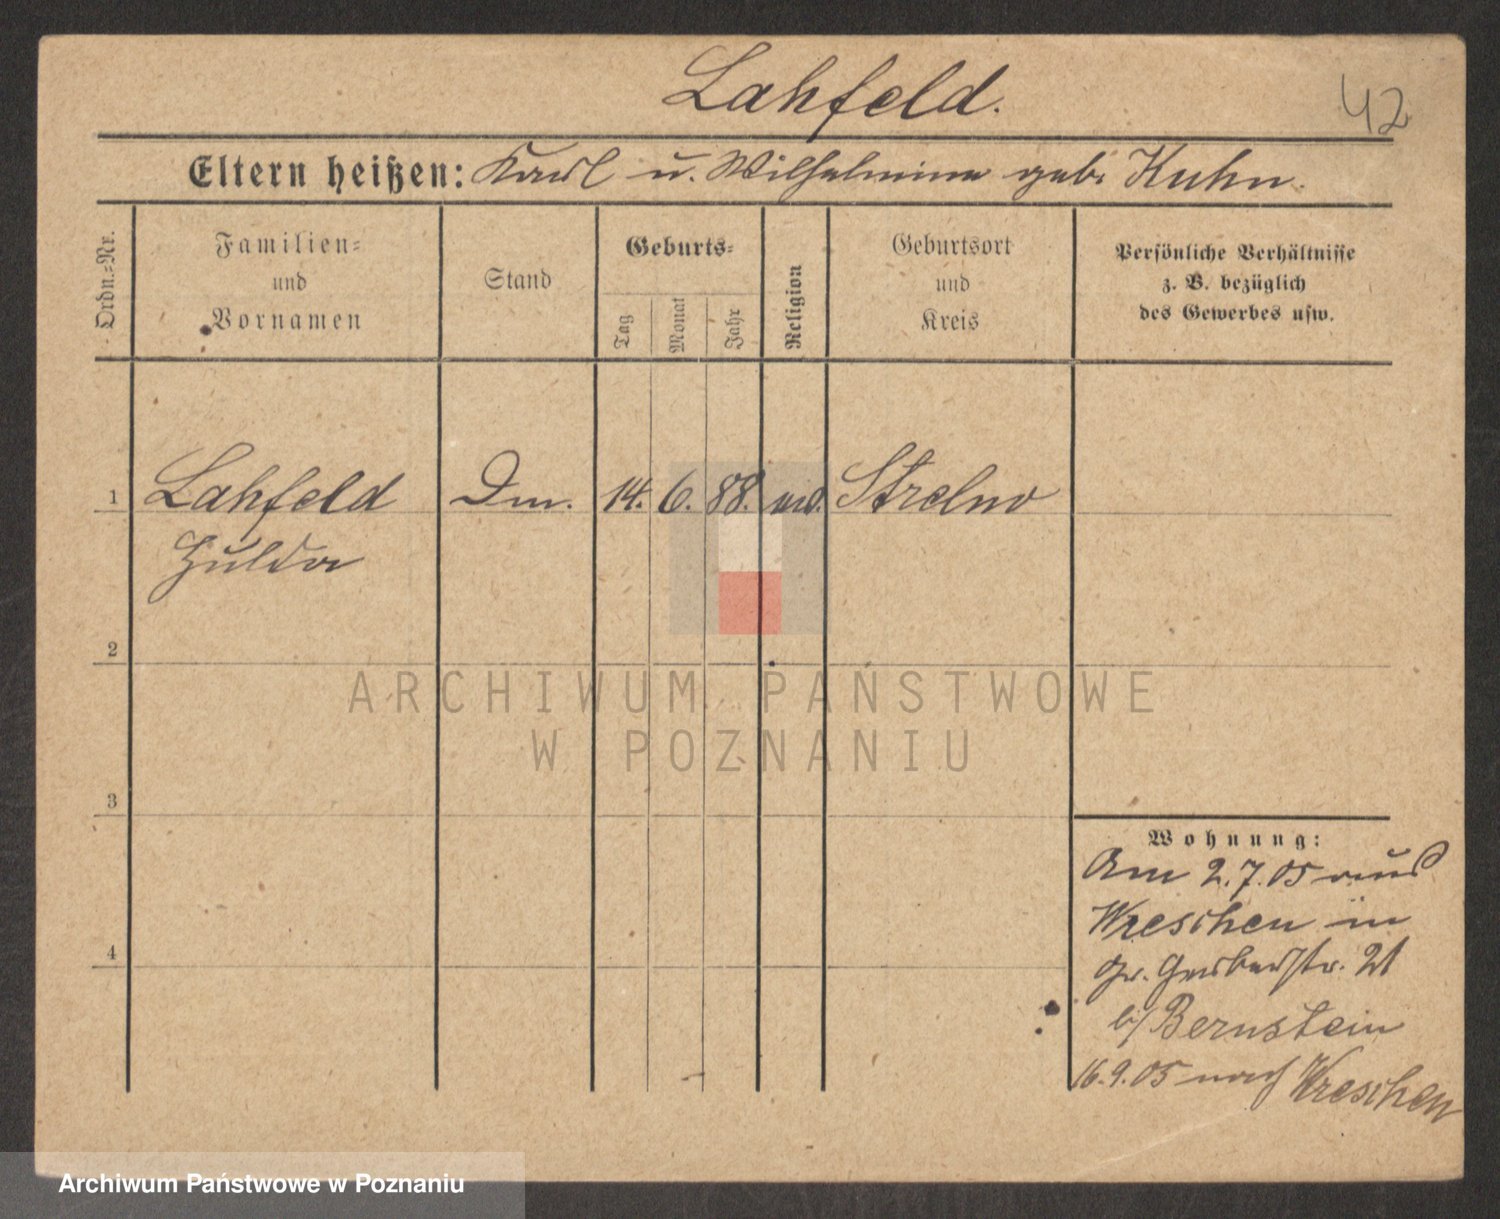 Lahfeld.
42
Eltern heißen: Karl u. Wilhelmine geb. Kuhn.
Ordn.=Nr.
Familien=
und
Vornamen
Stand
Geburts=
Tag
Monat
Jahr
Religion
Geburtsort
und
Kreis
Persönliche Verhältnisse
z. B. bezüglich
des Gewerbes usw.
1 Lahfeld 14. 6. 88. Strelno
Hulda
2
ARCHIWUM PAŃSTWOWE
W POZNANIU
3
Wohnung:
Am 2.7.05 aus
Wreschen in
4
Gr. Gerberstr. 21
b/ Bernstein
16.9.05 nach Wreschen
Archiwum Państwowe w Poznaniu